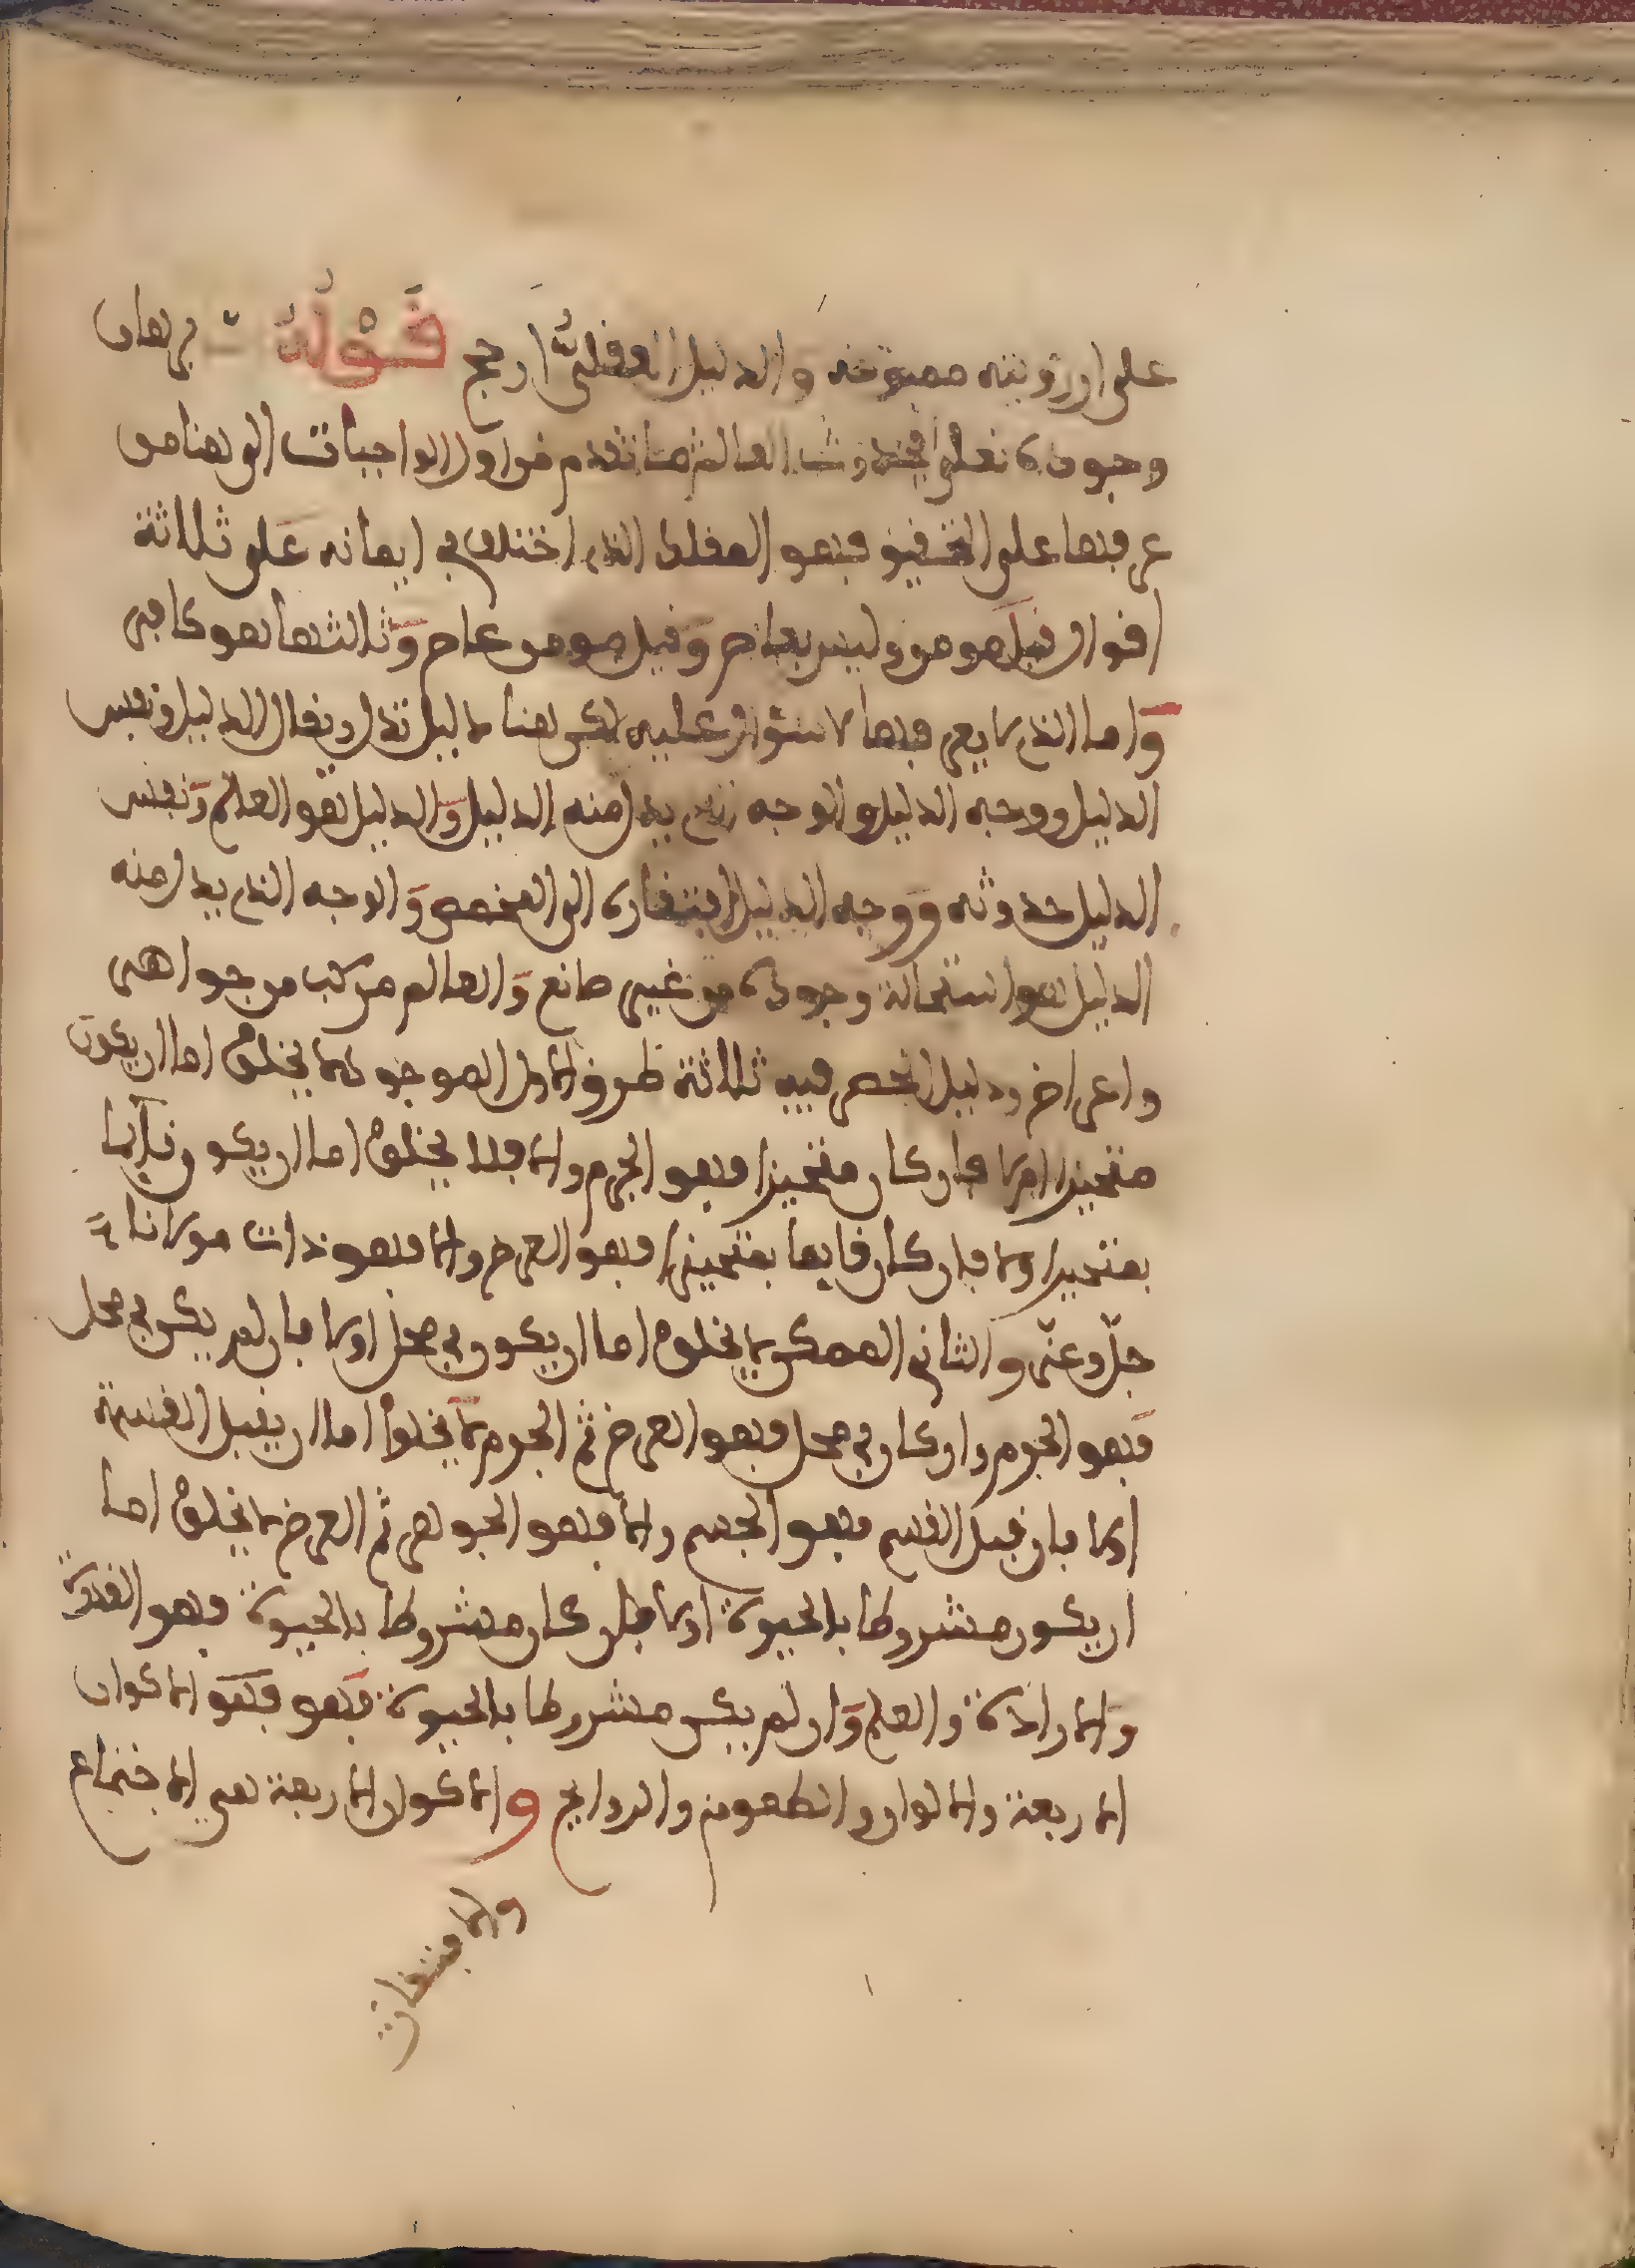 على ان رؤيته مميوتته والدليل العقلي ارجح قوله برهان
وجوده تعلى فحدوث العالم ما تقدم من اول الواجبات الى هنا من
عرفها على التحقيق فهو المقلد الذي اختلف في ايمانه على ثلاثة
اقوال قيل مومن وليس بعاص وقيل مومن عاص وثالثها هو كافر
واما الذي لا يعرفها لا سؤال عليه لكن هنا دليل تدل ونقال الدليل ونفس
الدليل ووجه الدليل والوجه الذي يدل منه الدليل والدليل هو العالم ونفس
الدليل حدوثه ووجه الدليل افتقاره الى المخصص والوجه الذي يدل منه
الدليل هو استحالة وجوده من غير صانع والعالم مركب من جواهر
واعراض ودليل الحصر فيه ثلاثة طرق الاول الموجود لا يخلوا اما ان يكون
متحيزا ام لا فان كان متحيزا فهو الجرم والا فلا يخلوا اما ان يكون قايما
بمتحيز او لا فان كان قايما بمتحيز فهو العرض والا فهو ذات مولانا
جل وعز والثاني الممكن لا يخلوا اما ان يكون في محل او لا فان لم يكن في محل
فهو الجرم وان كان في محل فهو العرض ثم الجرم لا يخلوا اما ان يقبل القسمة
او لا فان قبل القسم فهو الجسم والا فهو الجوهر ثم العرض لا يخلوا اما
ان يكون مشروطا بالحيوة او لا فان كان مشروطا بالحيوة فهو القدرة
والارادة والعلم وان لم يكن مشروطا بالحيوة فهو فهو الاكوان
الاربعة والالوان والطعوم والروايح والاكوان الاربعة هي الاجتماع
والافتقان